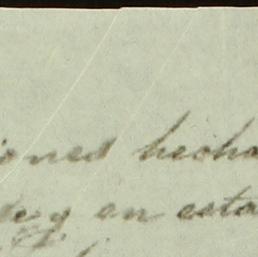 iones hecha
des y en esta